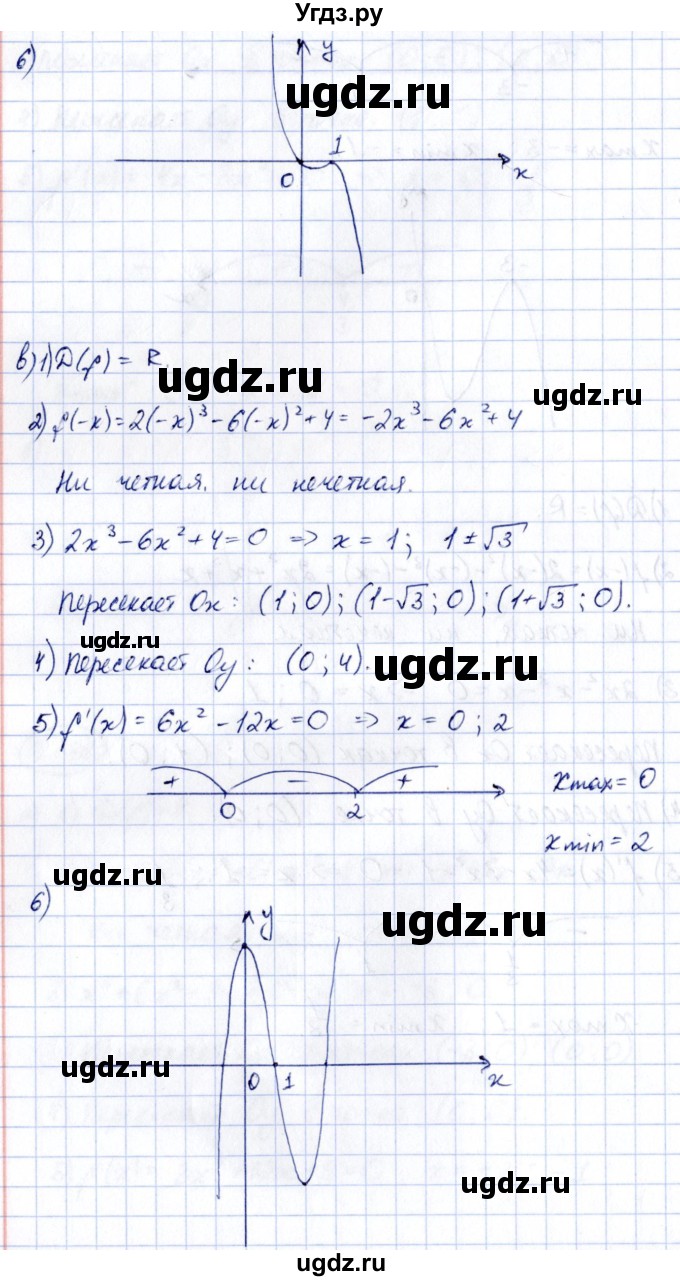 Угдз.ру
6)
y
ugdz.ru
1
0
x
в) 1) D(f) = R
ugdz.ru
ugdz.ru
2) f(-x) = 2(-x)³ - 6(-x)² + 4 = -2x³ - 6x² + 4
Ни четная, ни нечетная.
3) 2x³ - 6x² + 4 = 0 => x = 1; 1 ± √3
Пересекает Ox: (1; 0); (1-√3; 0); (1+√3; 0).
ugdz.ru
4) Пересекает Oy: (0; 4).
ugdz.ru
5) f'(x) = 6x² - 12x = 0 => x = 0; 2
+ - +
0 2
xmax = 0
xmin = 2
ugdz.ru
6)
y
ugdz.ru
ugdz.ru
0 1
x
ugdz.ru
ugdz.ru